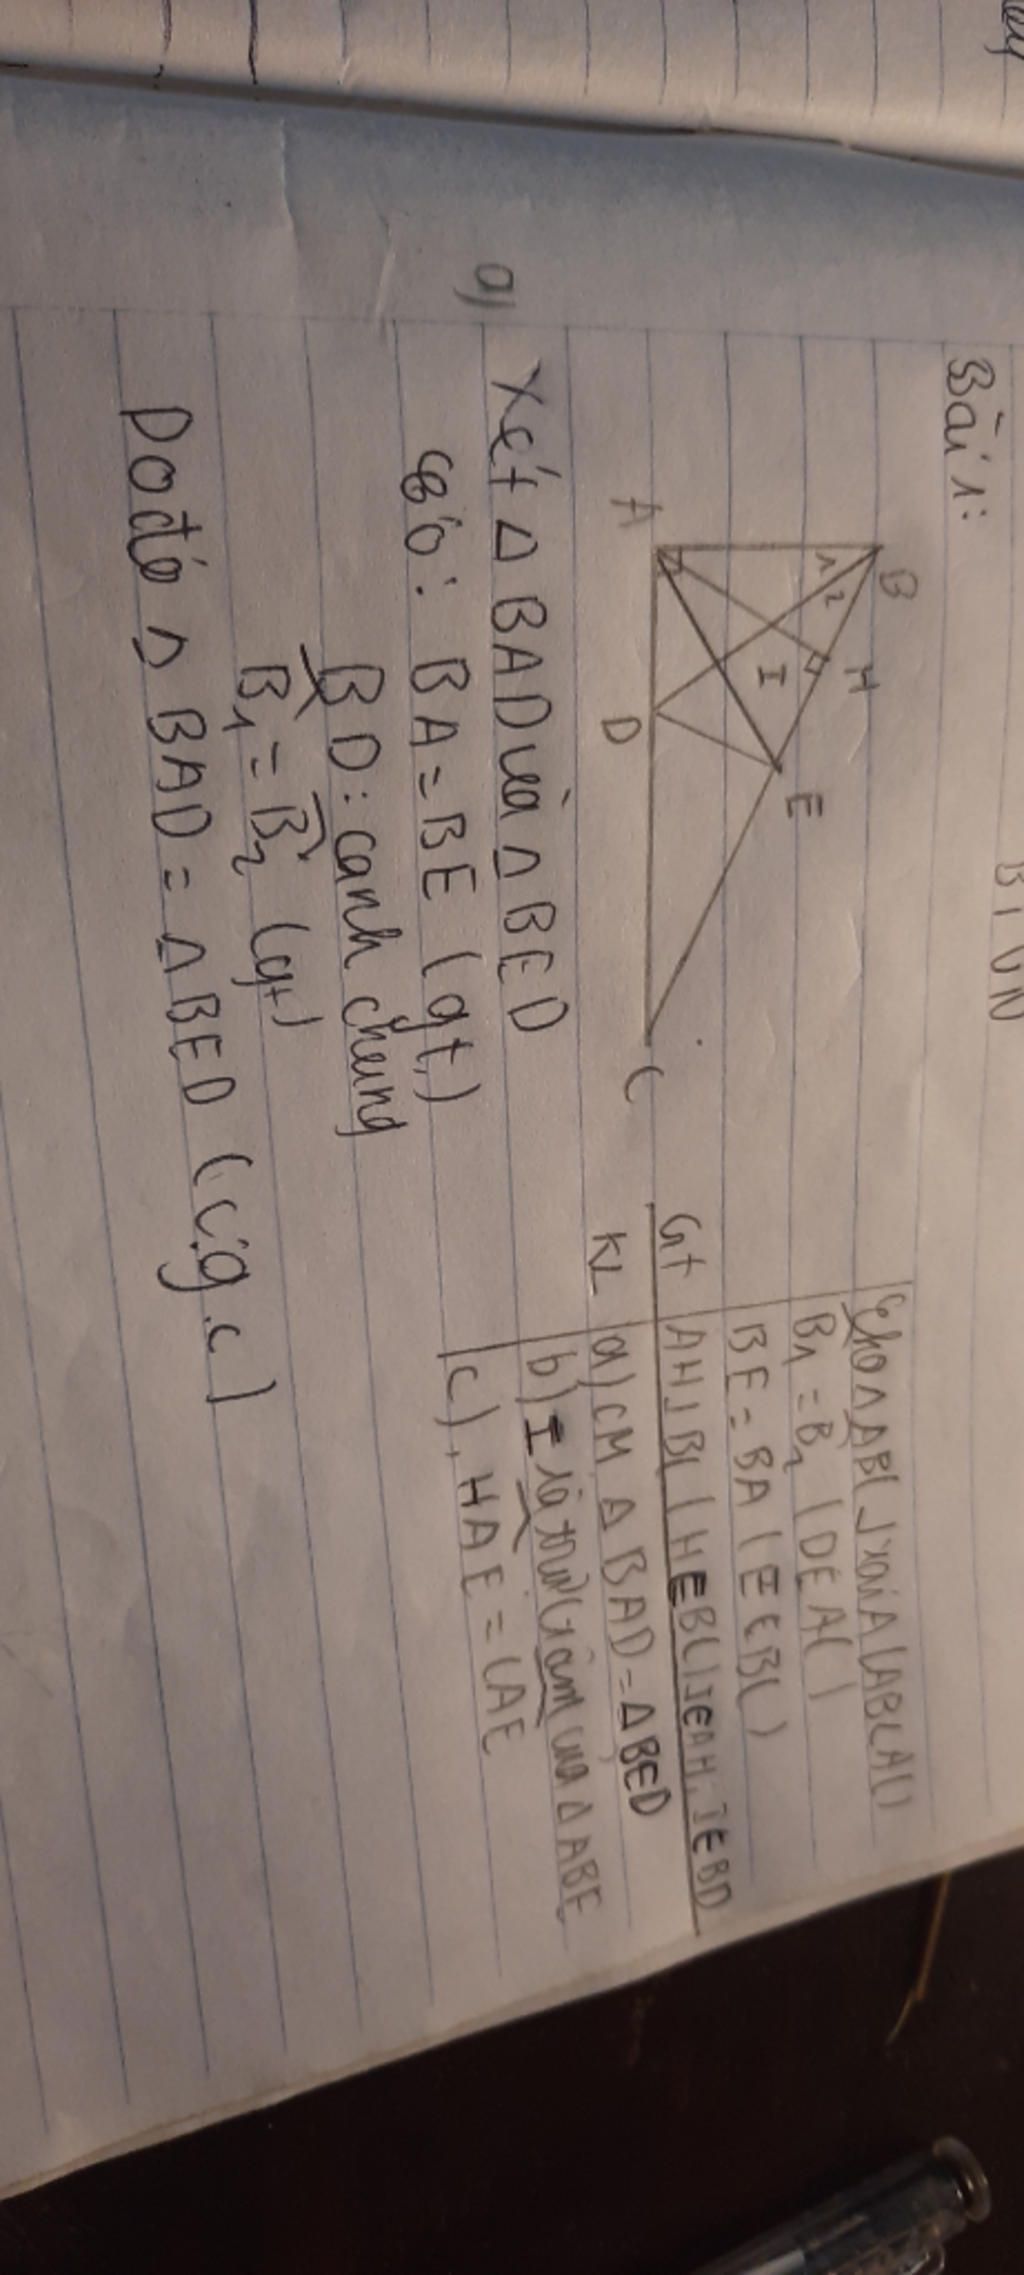 BTVN
Bài 1:
B
H
E
1 2
I
A
D
C
Cho Δ ABC ⊥ tại A (AB<AC)
B̂1 = B̂2 (D∈AC)
BE = BA (E∈BC)
Gt AH⊥BC (H∈BC) I∈AH, I∈BD
KL a) CM Δ BAD = Δ BED
b) I là trực tâm của Δ ABE
c), HAE = CAE
a)
Xét Δ BAD và Δ BED
có: BA = BE (gt)
BD: cạnh chung
B̂1 = B̂2 (gt)
Do đó Δ BAD = Δ BED (c.g.c)